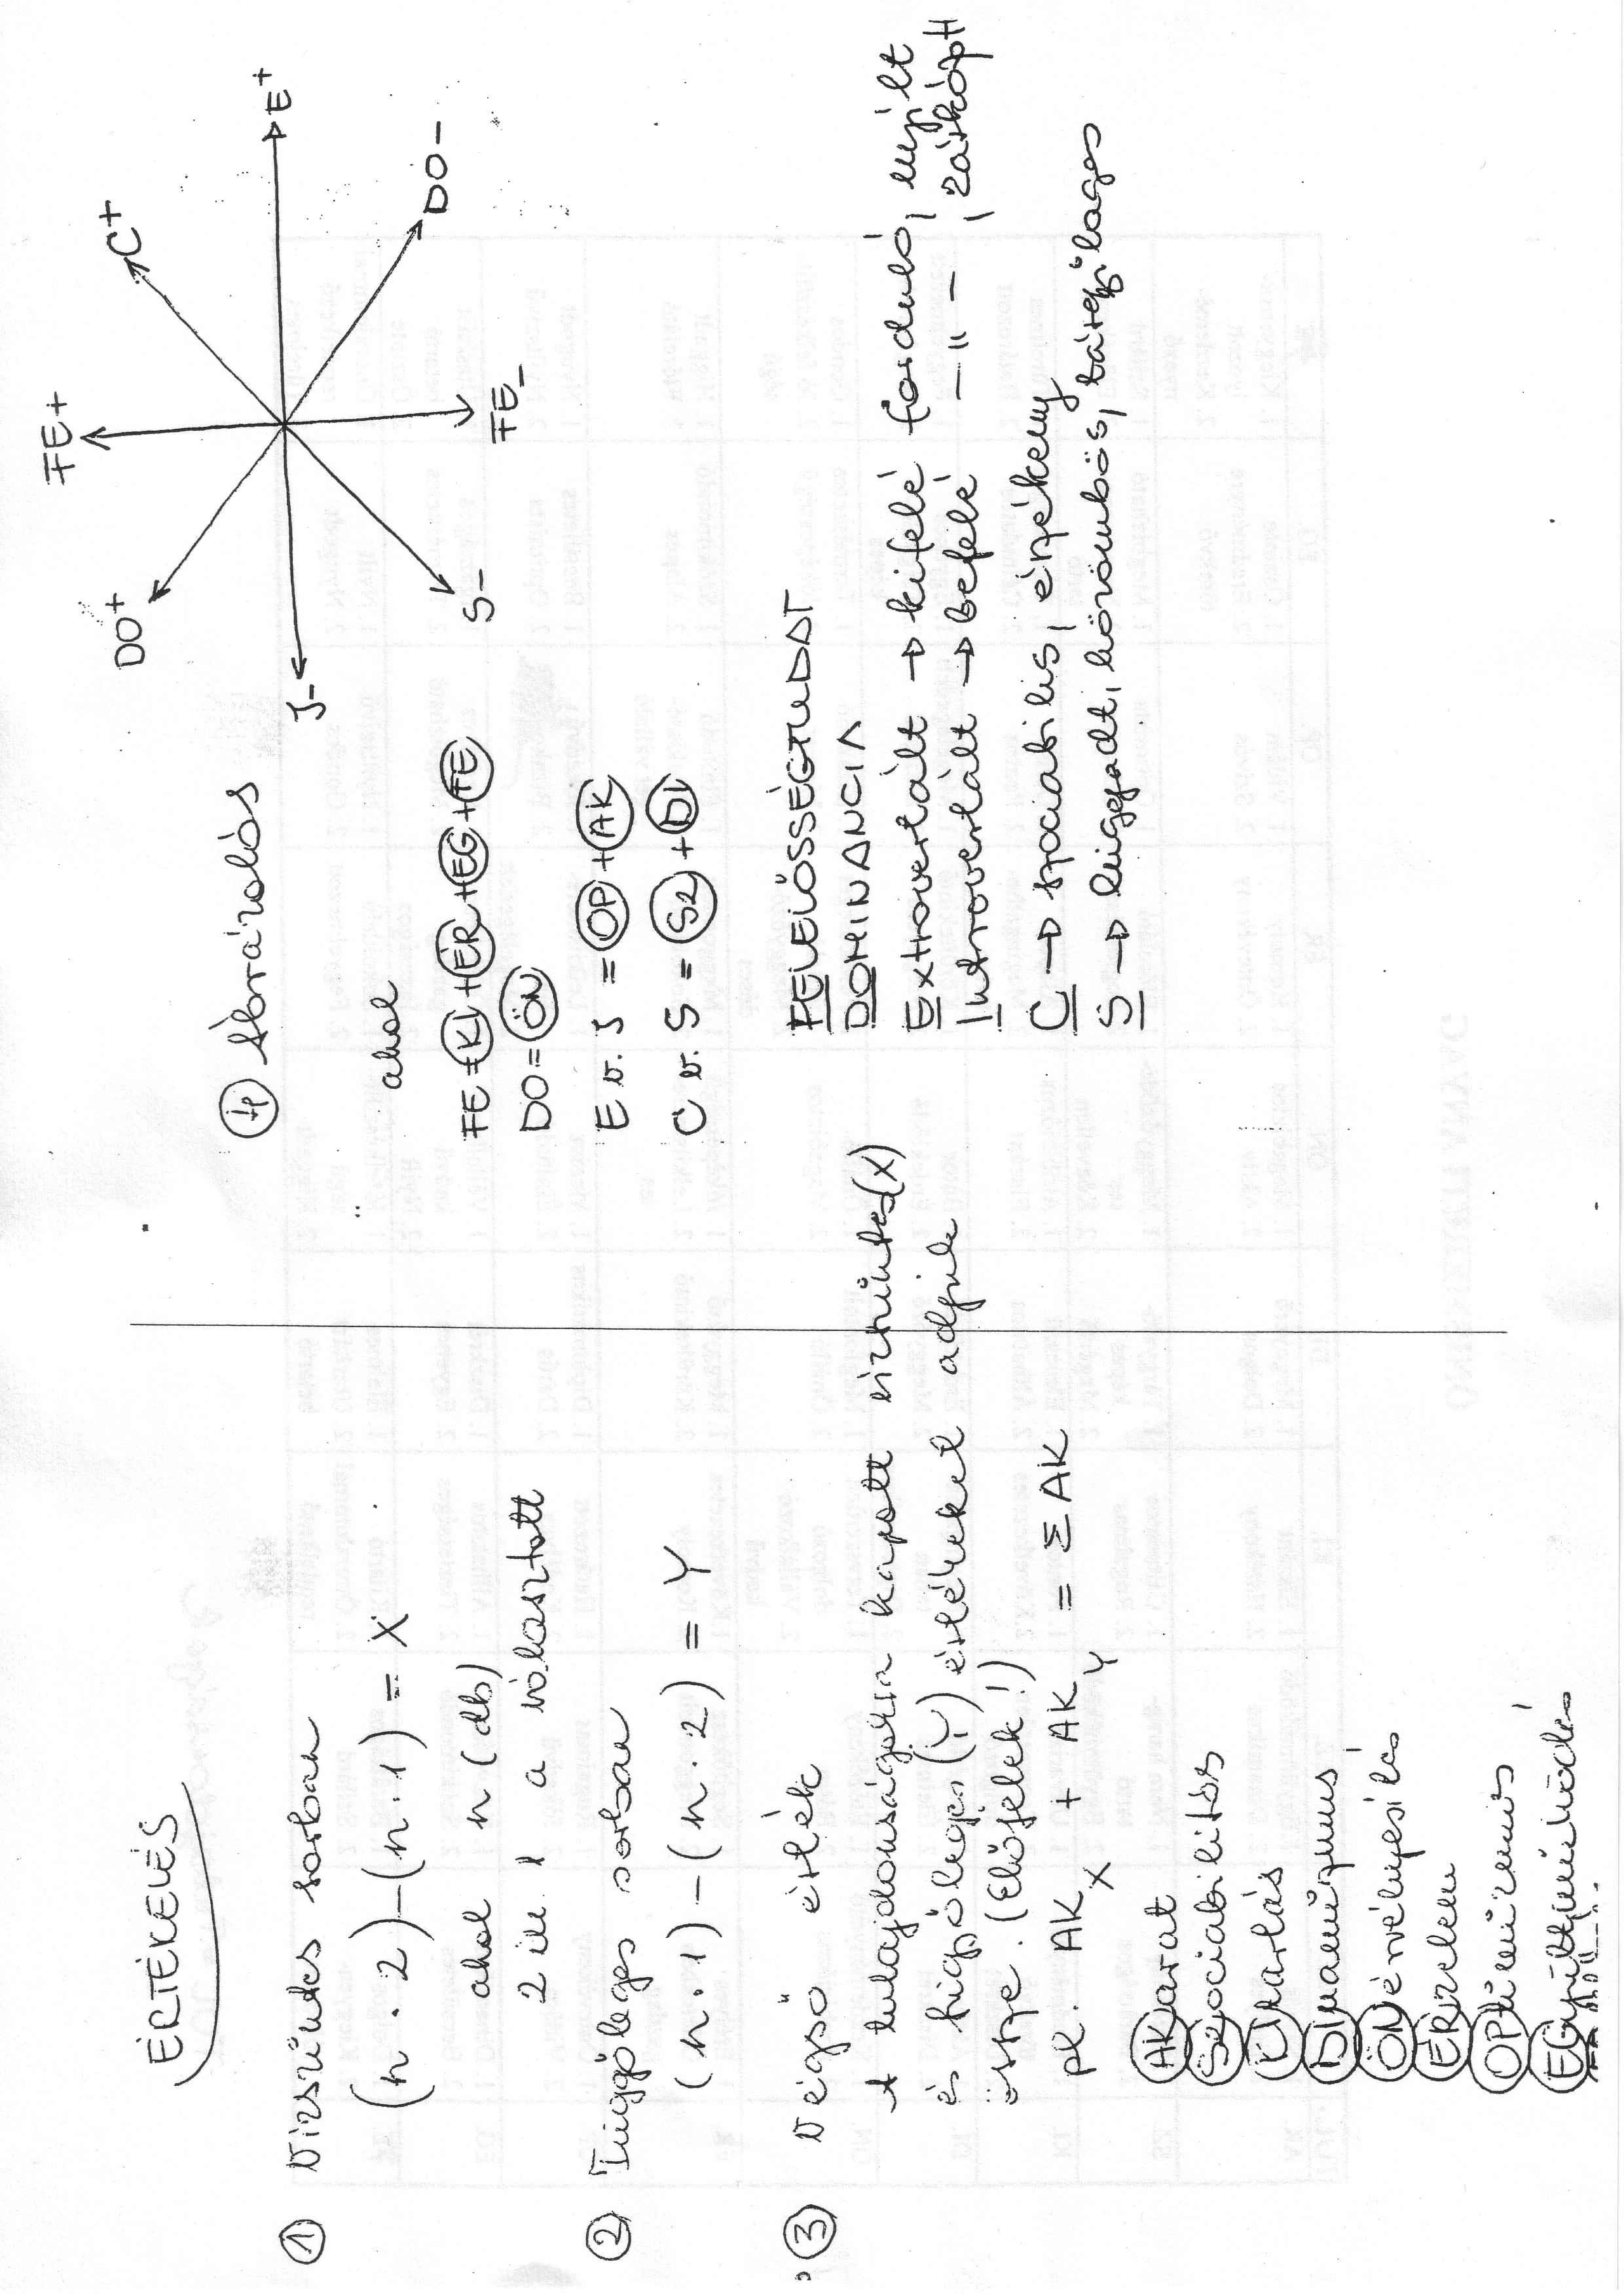 ÉRTÉKELÉS
① Vízszintes sorban
(n · 2) – (n · 1) = X
ahol n (db)
2 ill. 1 a választott
② Függőleges sorban
(n · 1) – (n · 2) = Y
③ Végső érték
A tulajdonságokra kapott vízszintes (X)
és függőleges (Y) értékeket adjuk
össze. (Előjelek!)
pl. AKx + AKY = ΣAK
AKarat
SZociabilitás
KItartás
DInamizmus
ÖNérvényesítés
ÉRzelem
OPtimizmus
EGyüttműködés
④ Ábrázolás
ahol
FE = KI + ÉR + EG + FE
DO = ÖN
E v. I = OP + AK
C v. S = SZ + DI
FE+
C+
E+
DO-
FE-
S-
I-
DO+
FELELŐSSÉGTUDAT
DOMINANCIA
Extrovertált → kifelé forduló, nyílt
Introvertált → befelé – " – , zárkózott
C → szociabilis, érzékeny
S → higgadt, közömbös, tárgyilagos